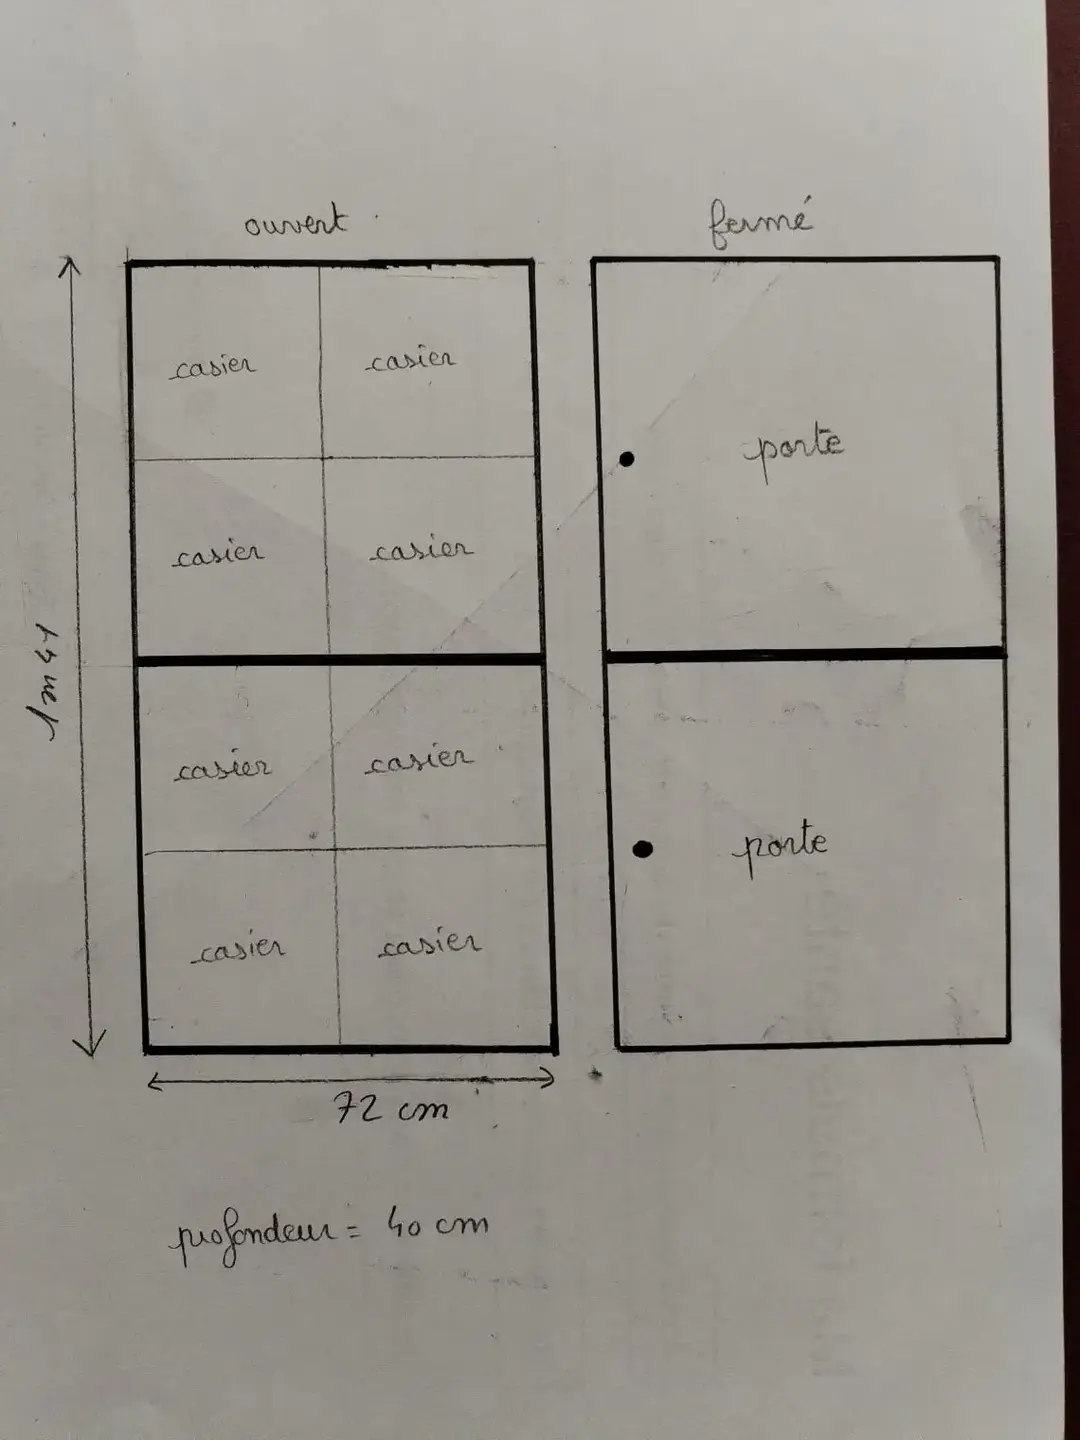 ouvert
fermé
casier
casier
casier
casier
casier
casier
casier
casier
porte
porte
72 cm
profondeur = 40 cm